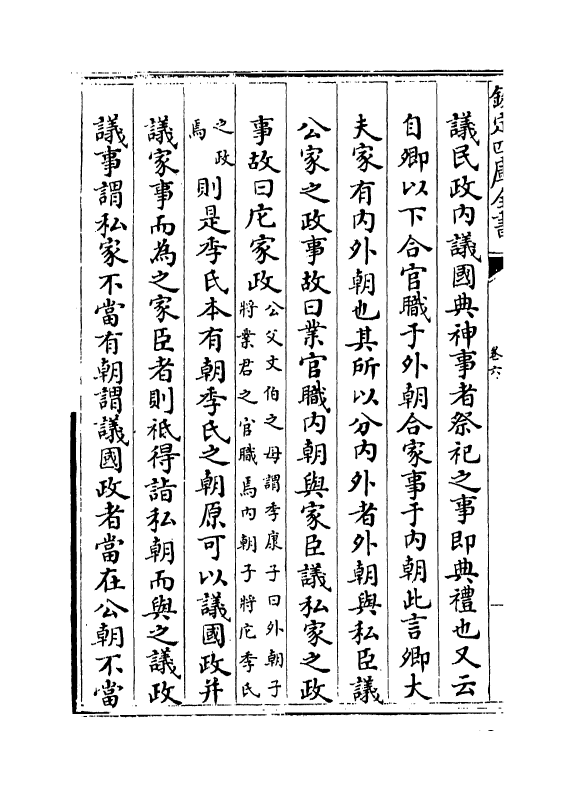 欽定四庫全書
卷六
議民政內議國典神事者祭祀之事即典禮也又云
自卿以下合官職于外朝合家事于內朝此言卿大
夫家有內外朝也其所以分內外者外朝與私臣議
公家之政事故曰業官職內朝與家臣議私家之政
事故曰庀家政公父文伯之母謂季康子曰外朝子
將業君之官職焉內朝子將庀季氏
之政
焉則是季氏本有朝季氏之朝原可以議國政并
議家事而為之家臣者則祗得詣私朝而與之議政
議事謂私家不當有朝謂議國政者當在公朝不當